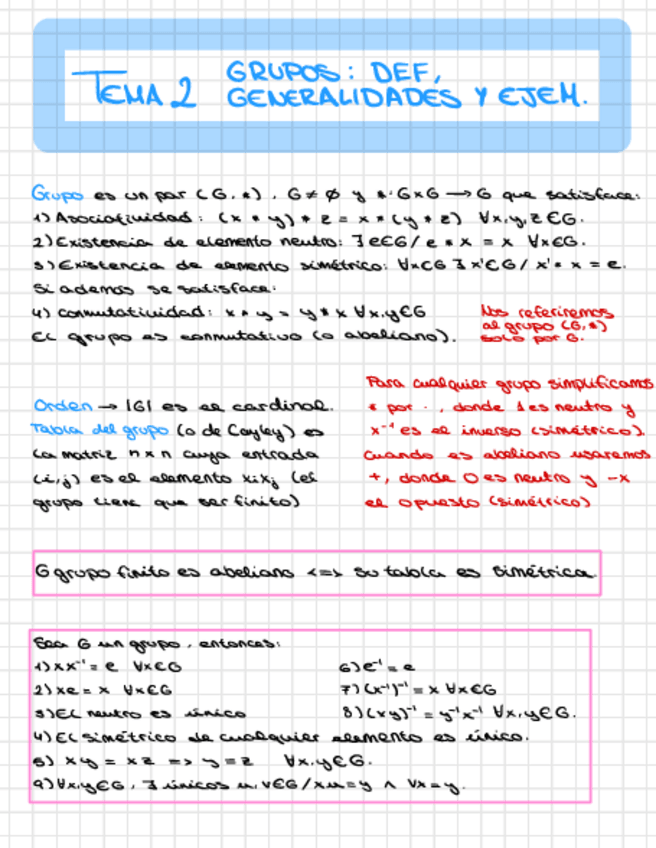 TEMA 2 GRUPOS: DEF,
GENERALIDADES Y EJEM.
Grupo es un par (G,*), G≠∅ y *:G×G → G que satisface:
1) Asociatividad: (x * y) * z = x * (y * z) ∀x,y,z∈G.
2) Existencia de elemento neutro: ∃e∈G/e * x = x ∀x∈G.
3) Existencia de elemento simétrico: ∀x∈G ∃x'∈G/ x' * x = e.
Si además se satisface:
4) conmutatividad: x * y = y * x ∀x,y∈G
El grupo es conmutativo (o abeliano).
Nos referiremos
al grupo (G,*)
solo por G.
Orden → |G| es el cardinal.
Tabla del grupo (o de Cayley) es
la matriz n×n cuya entrada
(i,j) es el elemento xixj (el
grupo tiene que ser finito)
Para cualquier grupo simplificamos
* por ·, donde 1 es neutro y
x⁻¹ es el inverso (simétrico).
Cuando es abeliano usaremos
+, donde 0 es neutro y -x
el opuesto (simétrico)
G grupo finito es abeliano <=> su tabla es simétrica.
Sea G un grupo, entonces:
1) xx⁻¹ = e ∀x∈G
2) xe = x ∀x∈G
3) El neutro es único
4) El simétrico de cualquier elemento es único.
5) xy = xz => y = z ∀x,y∈G.
6) e⁻¹ = e
7) (x⁻¹)⁻¹ = x ∀x∈G
8) (xy)⁻¹ = y⁻¹x⁻¹ ∀x,y∈G.
9) ∀x,y∈G, ∃ únicos u,v∈G/xu=y ∧ vx=y.